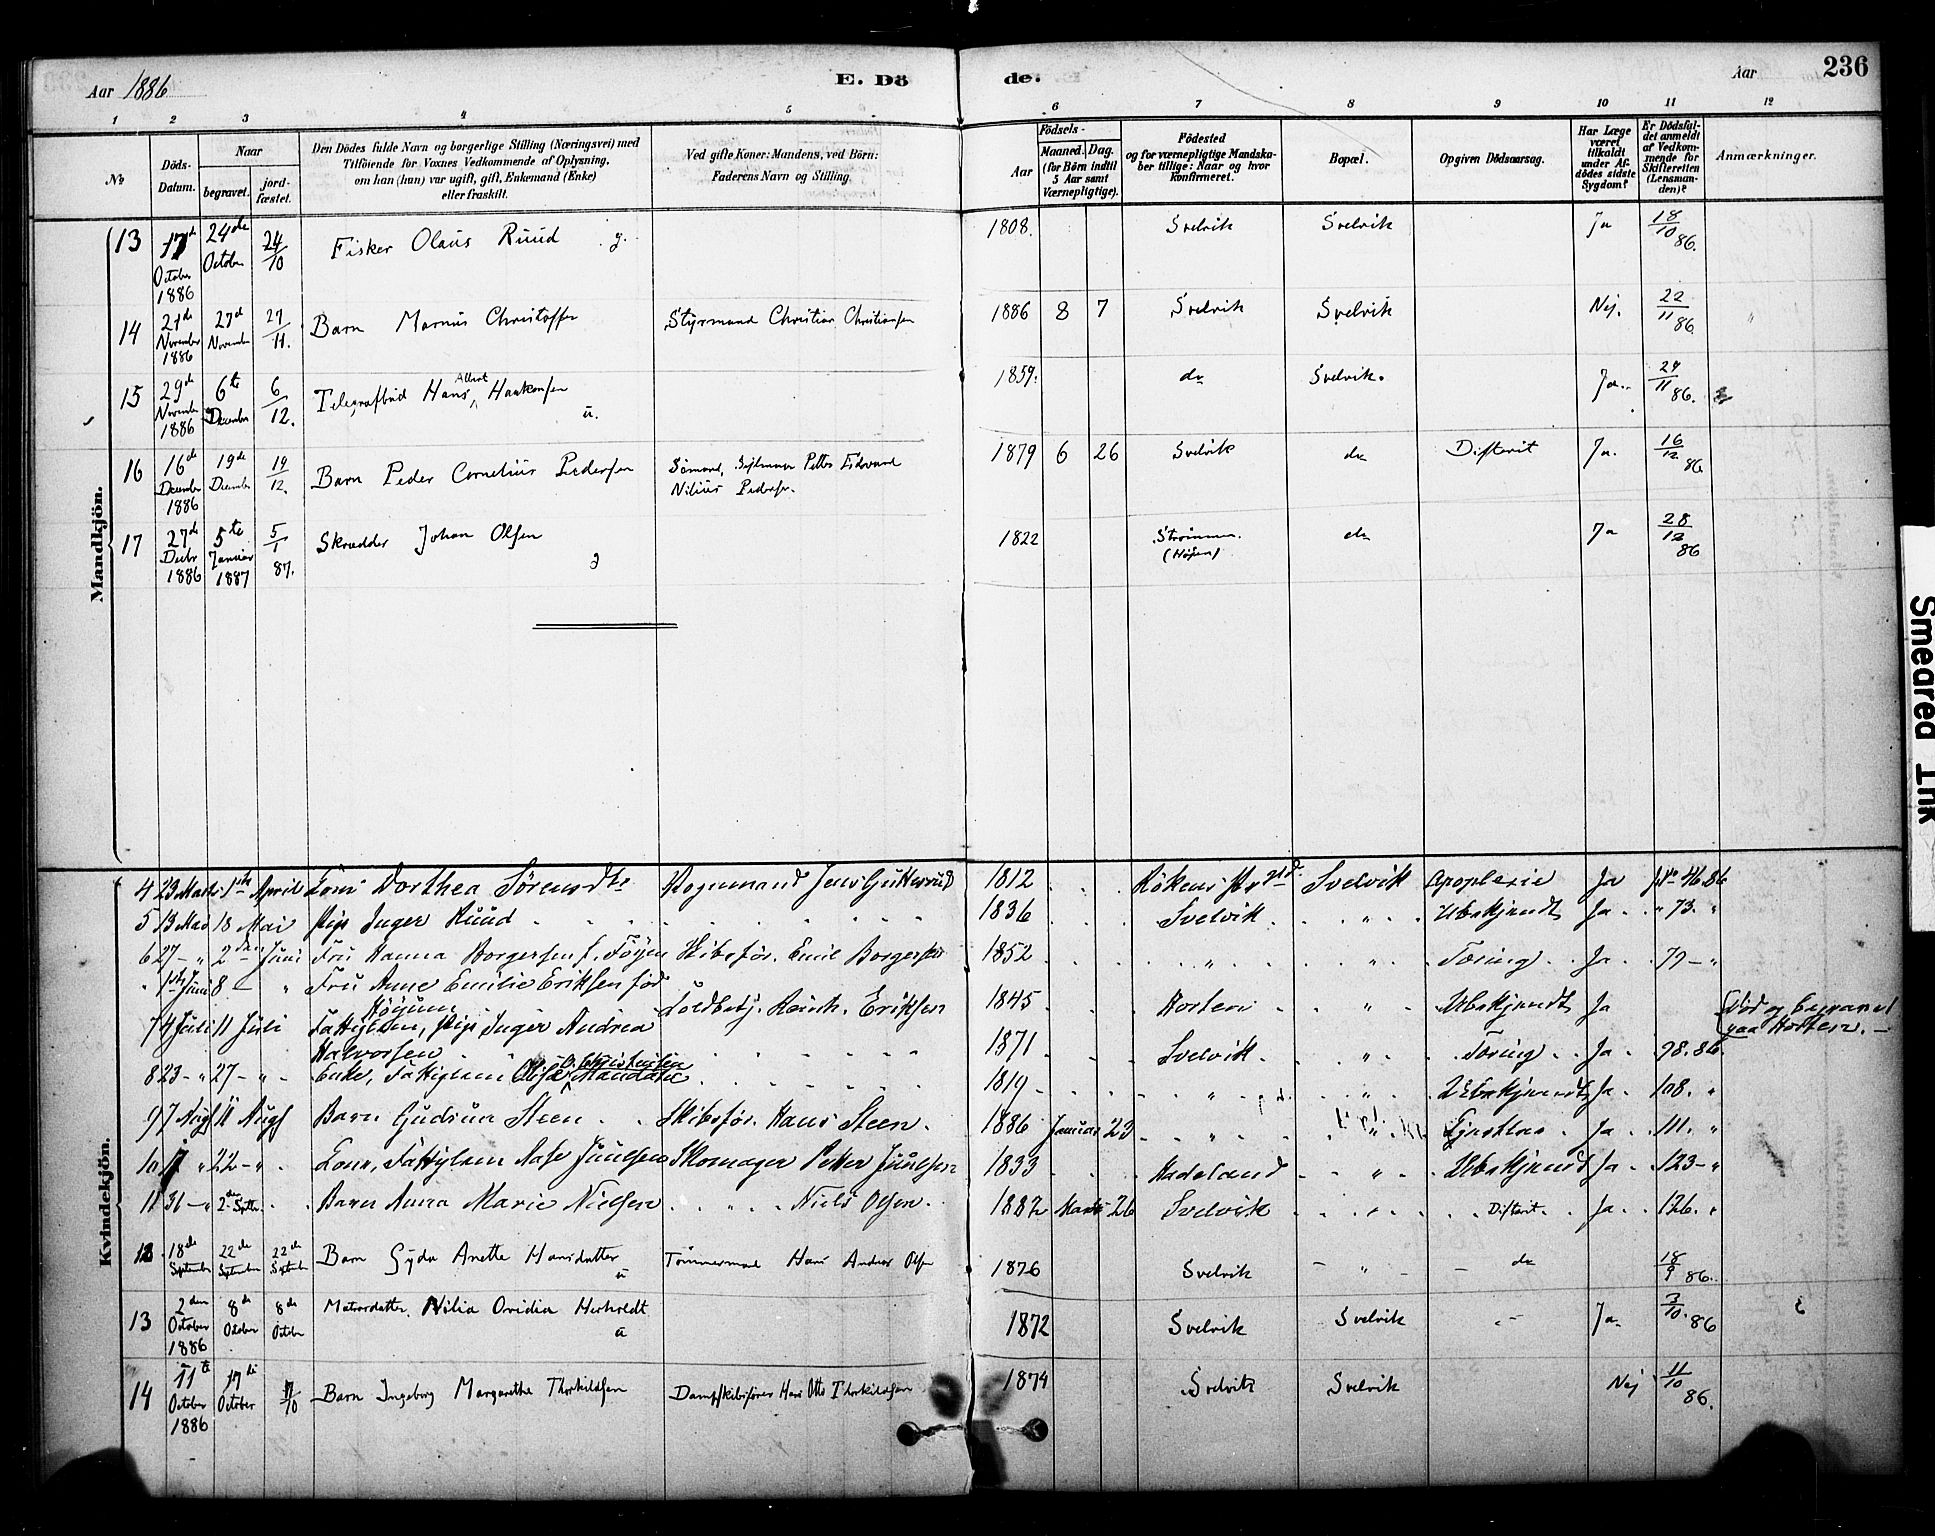 Aar 1886 E. Dö de. Aar 236
1 2 3 4 5 6 7 8 9 10 11 12
No
Döds-Datum.
Naar
begravet.
jord-fæstet.
Den Dödes fulde Navn og borgerlige Stilling (Næringsvei) med
Tilföiende for Voxnes Vedkommende af Oplysning,
om han (hun) var ugift, gift, Enkemand (Enke)
eller fraskilt.
Ved gifte Koner: Mandens, ved Börn:
Faderens Navn og Stilling.
Födsels-
Aar
Maaned. Dag.
(for Børn indtil
5 Aar samt
Værnepligtige).
Födested
og for værnepligtige Mandska-
ber tillige: Naar og hvor
konfirmeret.
Bopæl.
Opgiven Dödsaarsag.
Har Læge
været
tilkaldt
under Af-
dødes sidste
Sygdom?
Er Dödsfal-
det anmeldt
af Vedkom-
mende for
Skifteretten
(Lensman-
den)?
Anmærkninger.
Mandkjön.
13 17d October 1886 24de October 24/10 Fisker Olaus Ruud g. 1808. Svelvik Svelvik Ja 18/10 86.
14 21de November 1886 27d November 27/11. Barn Marnius Christoffer Styrmand Christian Christiansen 1886 8 7 Svelvik Svelvik Nej. 22/11 86. "
15 29de November 1886 6te December 6/12. Telegrafbud Hans Albert Haakonsen u. 1859. do Svelvik. Ja. 29/11 86.
16 16de December 1886 19de December 19/12. Barn Peder Cornelius Pedersen Sömand, Petter Edvard
Nilius Pedersen. 1879 6 26 Svelvik do Difterit Ja. 16/12 86
17 27de Decbr 1886 5te Januar 1887 5/1 87. Skrædder Johan Olsen 1822 Strömmen
do Ja 28/12 86
Kvindekjön.
4 23 Marts 1ste April Kone Dorthea Sörensdtr Rognmand Jens 1812 Rökens Prgjd. Svelvik Apoplexie Ja No 46.86
5 13 Mai 18 Mai Pige Inger Ruud 1836 Svelvik " Ubekjendt Ja " 73. "
6 27 - " 2den Juni Fru Hanna Borgersen f. Föyen Skibsför. Emil Borgersen 1852 " " Tæring Ja 79 - "
" 1ste Juni 8 - " Fru Anne Emilie Eriksen föd
Höyum Toldbetj. Eriksen 1845 Horten " Ubekjendt Ja Död og begravet
paa Horten. -
7 4 Juli 11 Juli Fattiglem, Pige Inger Andrea
Halvorsen 1871 Svelvik " Tæring Ja 98.86
8 23 - " 27 - " Enke, Fattiglem Olise Mandatie 1819 " " Ubekjendt Ja 108. "
9 7 Augs 11 Augs Barn Gudrun Steen Skibsför. Hans Steen. 1886 Januar 23 " " Ja 111. "
10 17 " 22 - " Kone, Fattiglem Aase Juulsen Skomager Petter Juulsen 1833 Hadeland " Ubekjendt Ja 123 - "
11 31 - " 2den Septbr. Barn Anna Marie Nielsen " Niels Olsen. 1882 Marts 26 Svelvik " Difterit Ja 126. "
12 18de September 22de September 22de September Barn Gyda Anette Hansdatter u Tömmermand Hans Andreas Olsen 1876 Svelvik - " - - do 18/9 86.
13 2den October 1886 8de October 8de October Matrosdatter Nilia Ovidia Herholdt u 1872 Svelvik Svelvik - Ja 3/10. 86
14 11te October 1886 17de October 17/10 Barn Ingeborg Margarethe Thorkildsen Dampskibsförer Hans Otto Thorkildsen 1874 Svelvik Svelvik Nej 11/10 86.
Smeared Ink